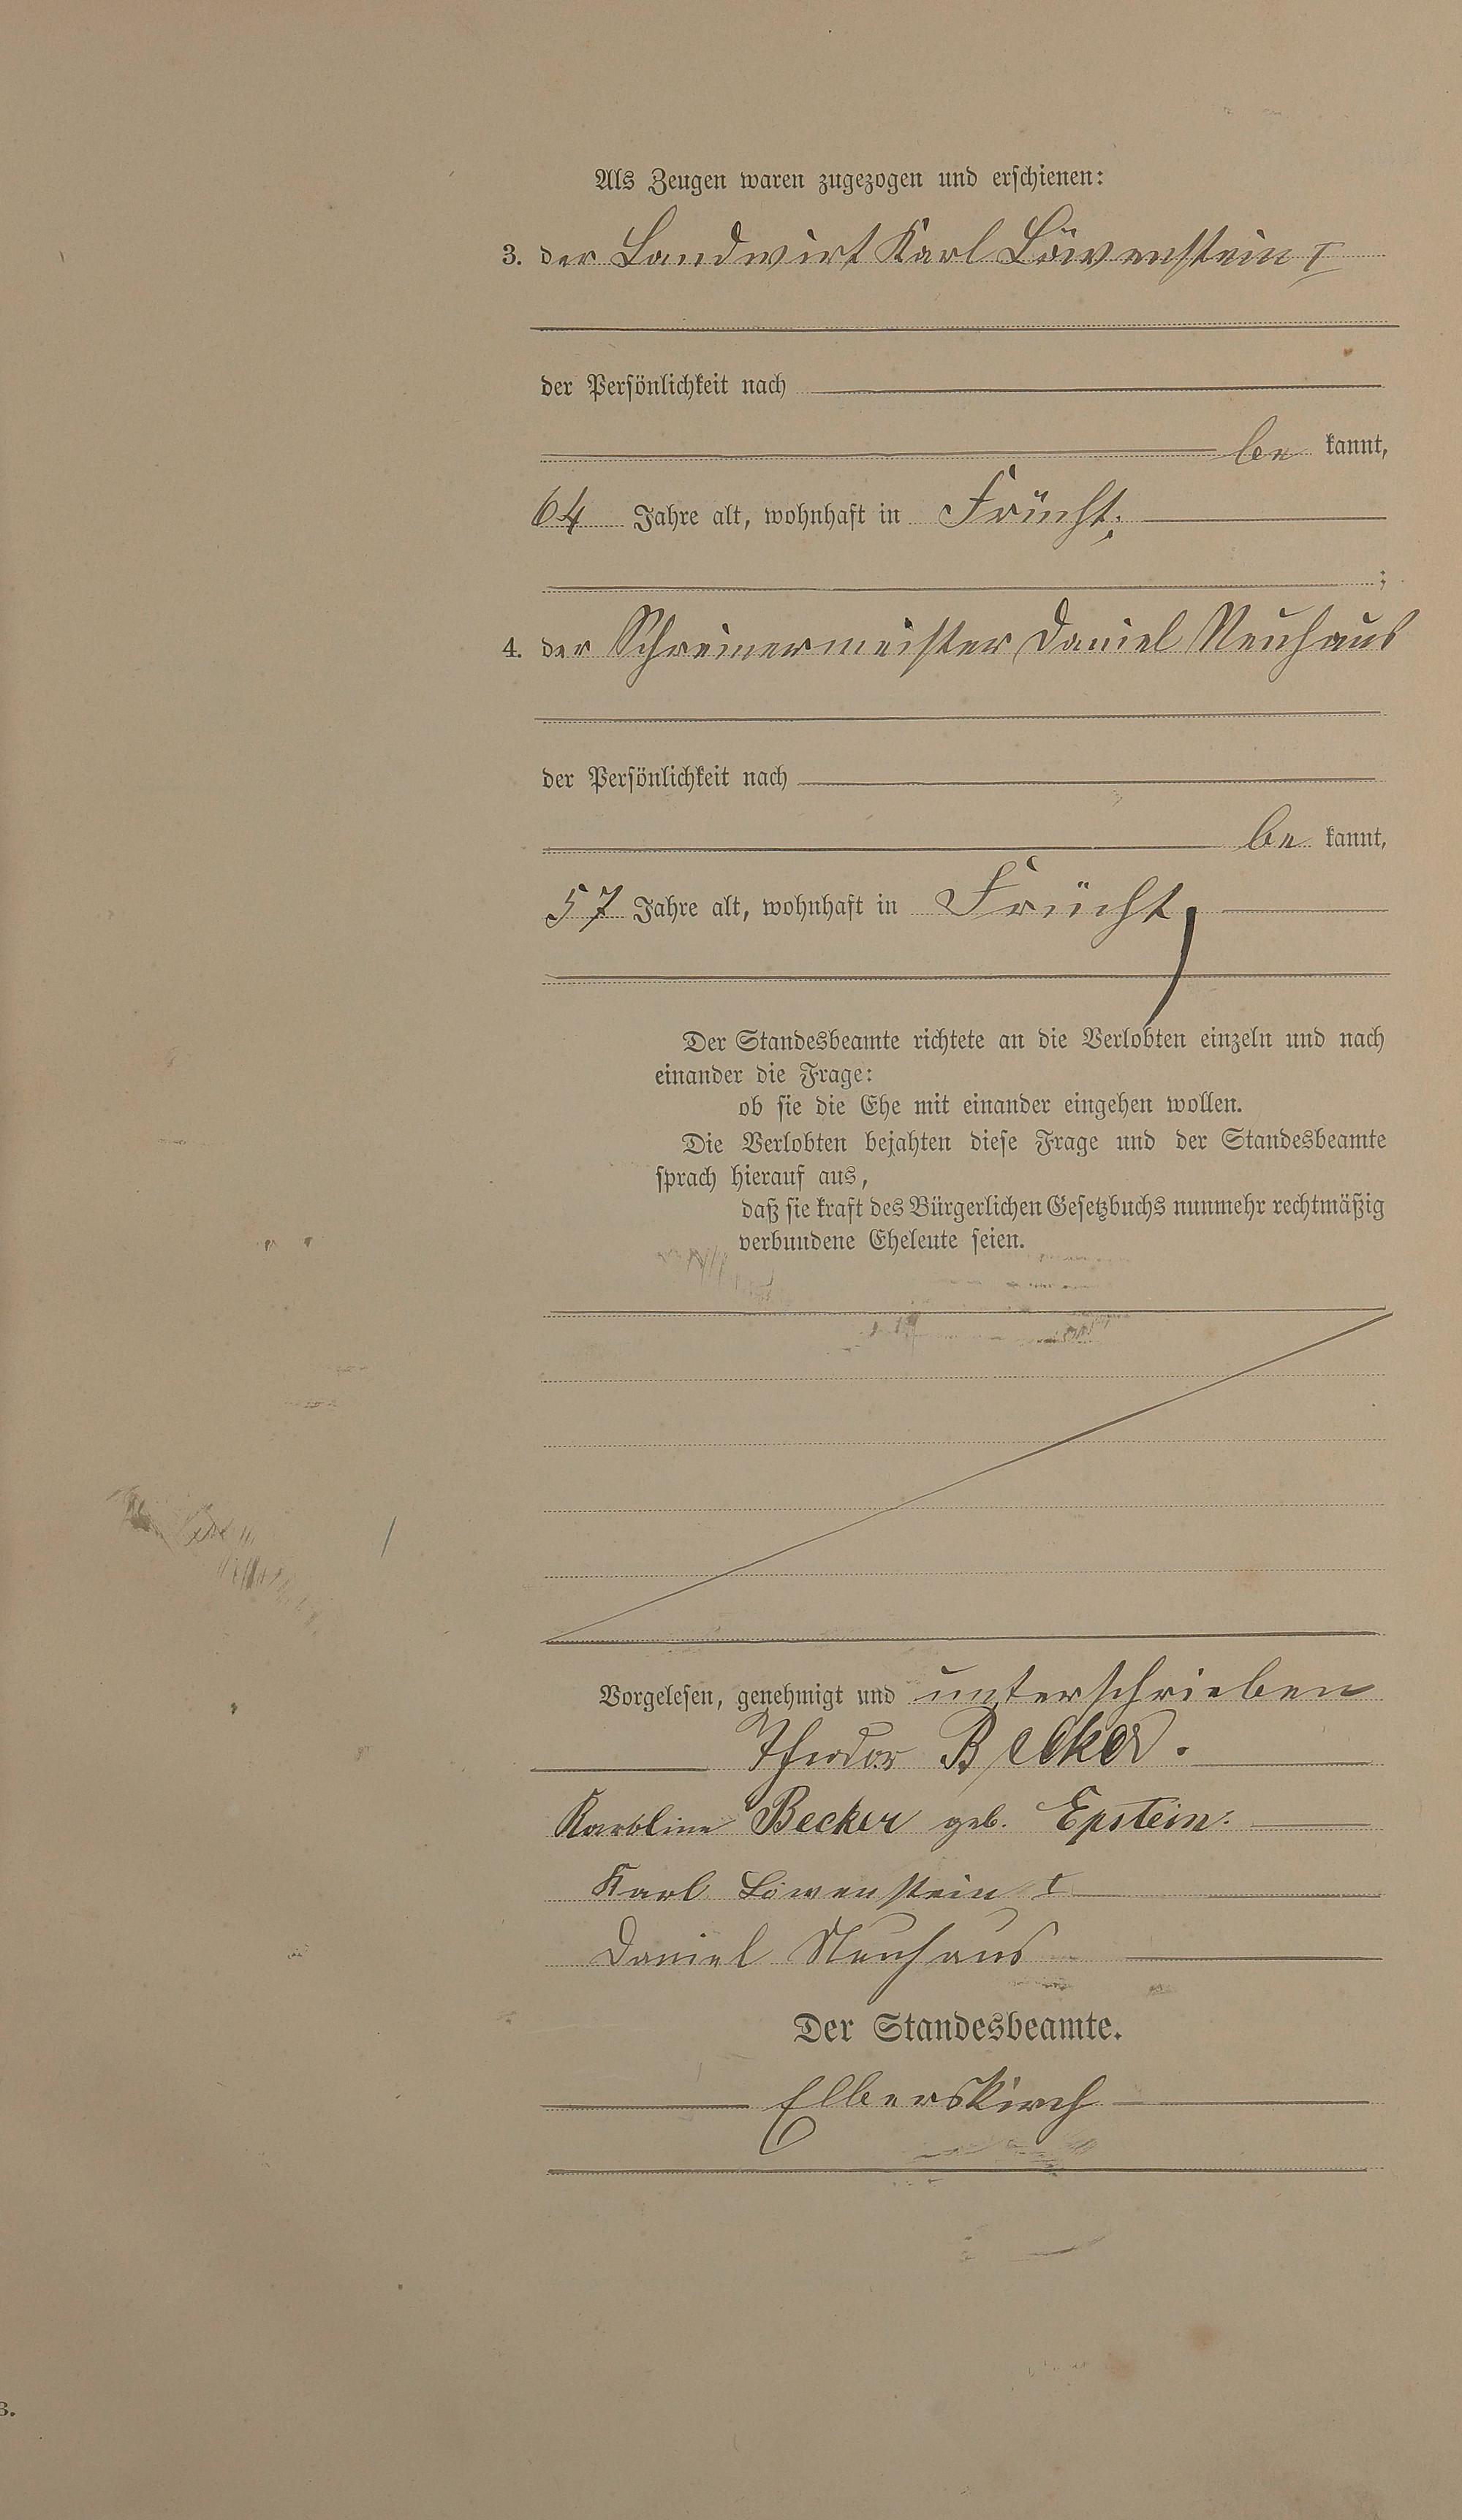 Als Zeugen waren zugezogen und erschienen:
3. der Landwirt Karl Löwenstein I
der Persönlichkeit nach
be kannt,
64 Jahre alt, wohnhaft in Frücht;
;
4. der Schreinermeister Daniel Neuhaus
der Persönlichkeit nach
be kannt,
57 Jahre alt, wohnhaft in Frücht,
Der Standesbeamte richtete an die Verlobten einzeln und nach
einander die Frage:
ob sie die Ehe mit einander eingehen wollen.
Die Verlobten bejahten diese Frage und der Standesbeamte
sprach hierauf aus,
daß sie kraft des Bürgerlichen Gesetzbuchs nunmehr rechtmäßig
verbundene Eheleute seien.
Vorgelesen, genehmigt und unterschrieben
Theodor Becker.
Karoline Becker geb. Epstein.
Karl Löwenstein I
Daniel Neuhaus
Der Standesbeamte.
Elberskirch